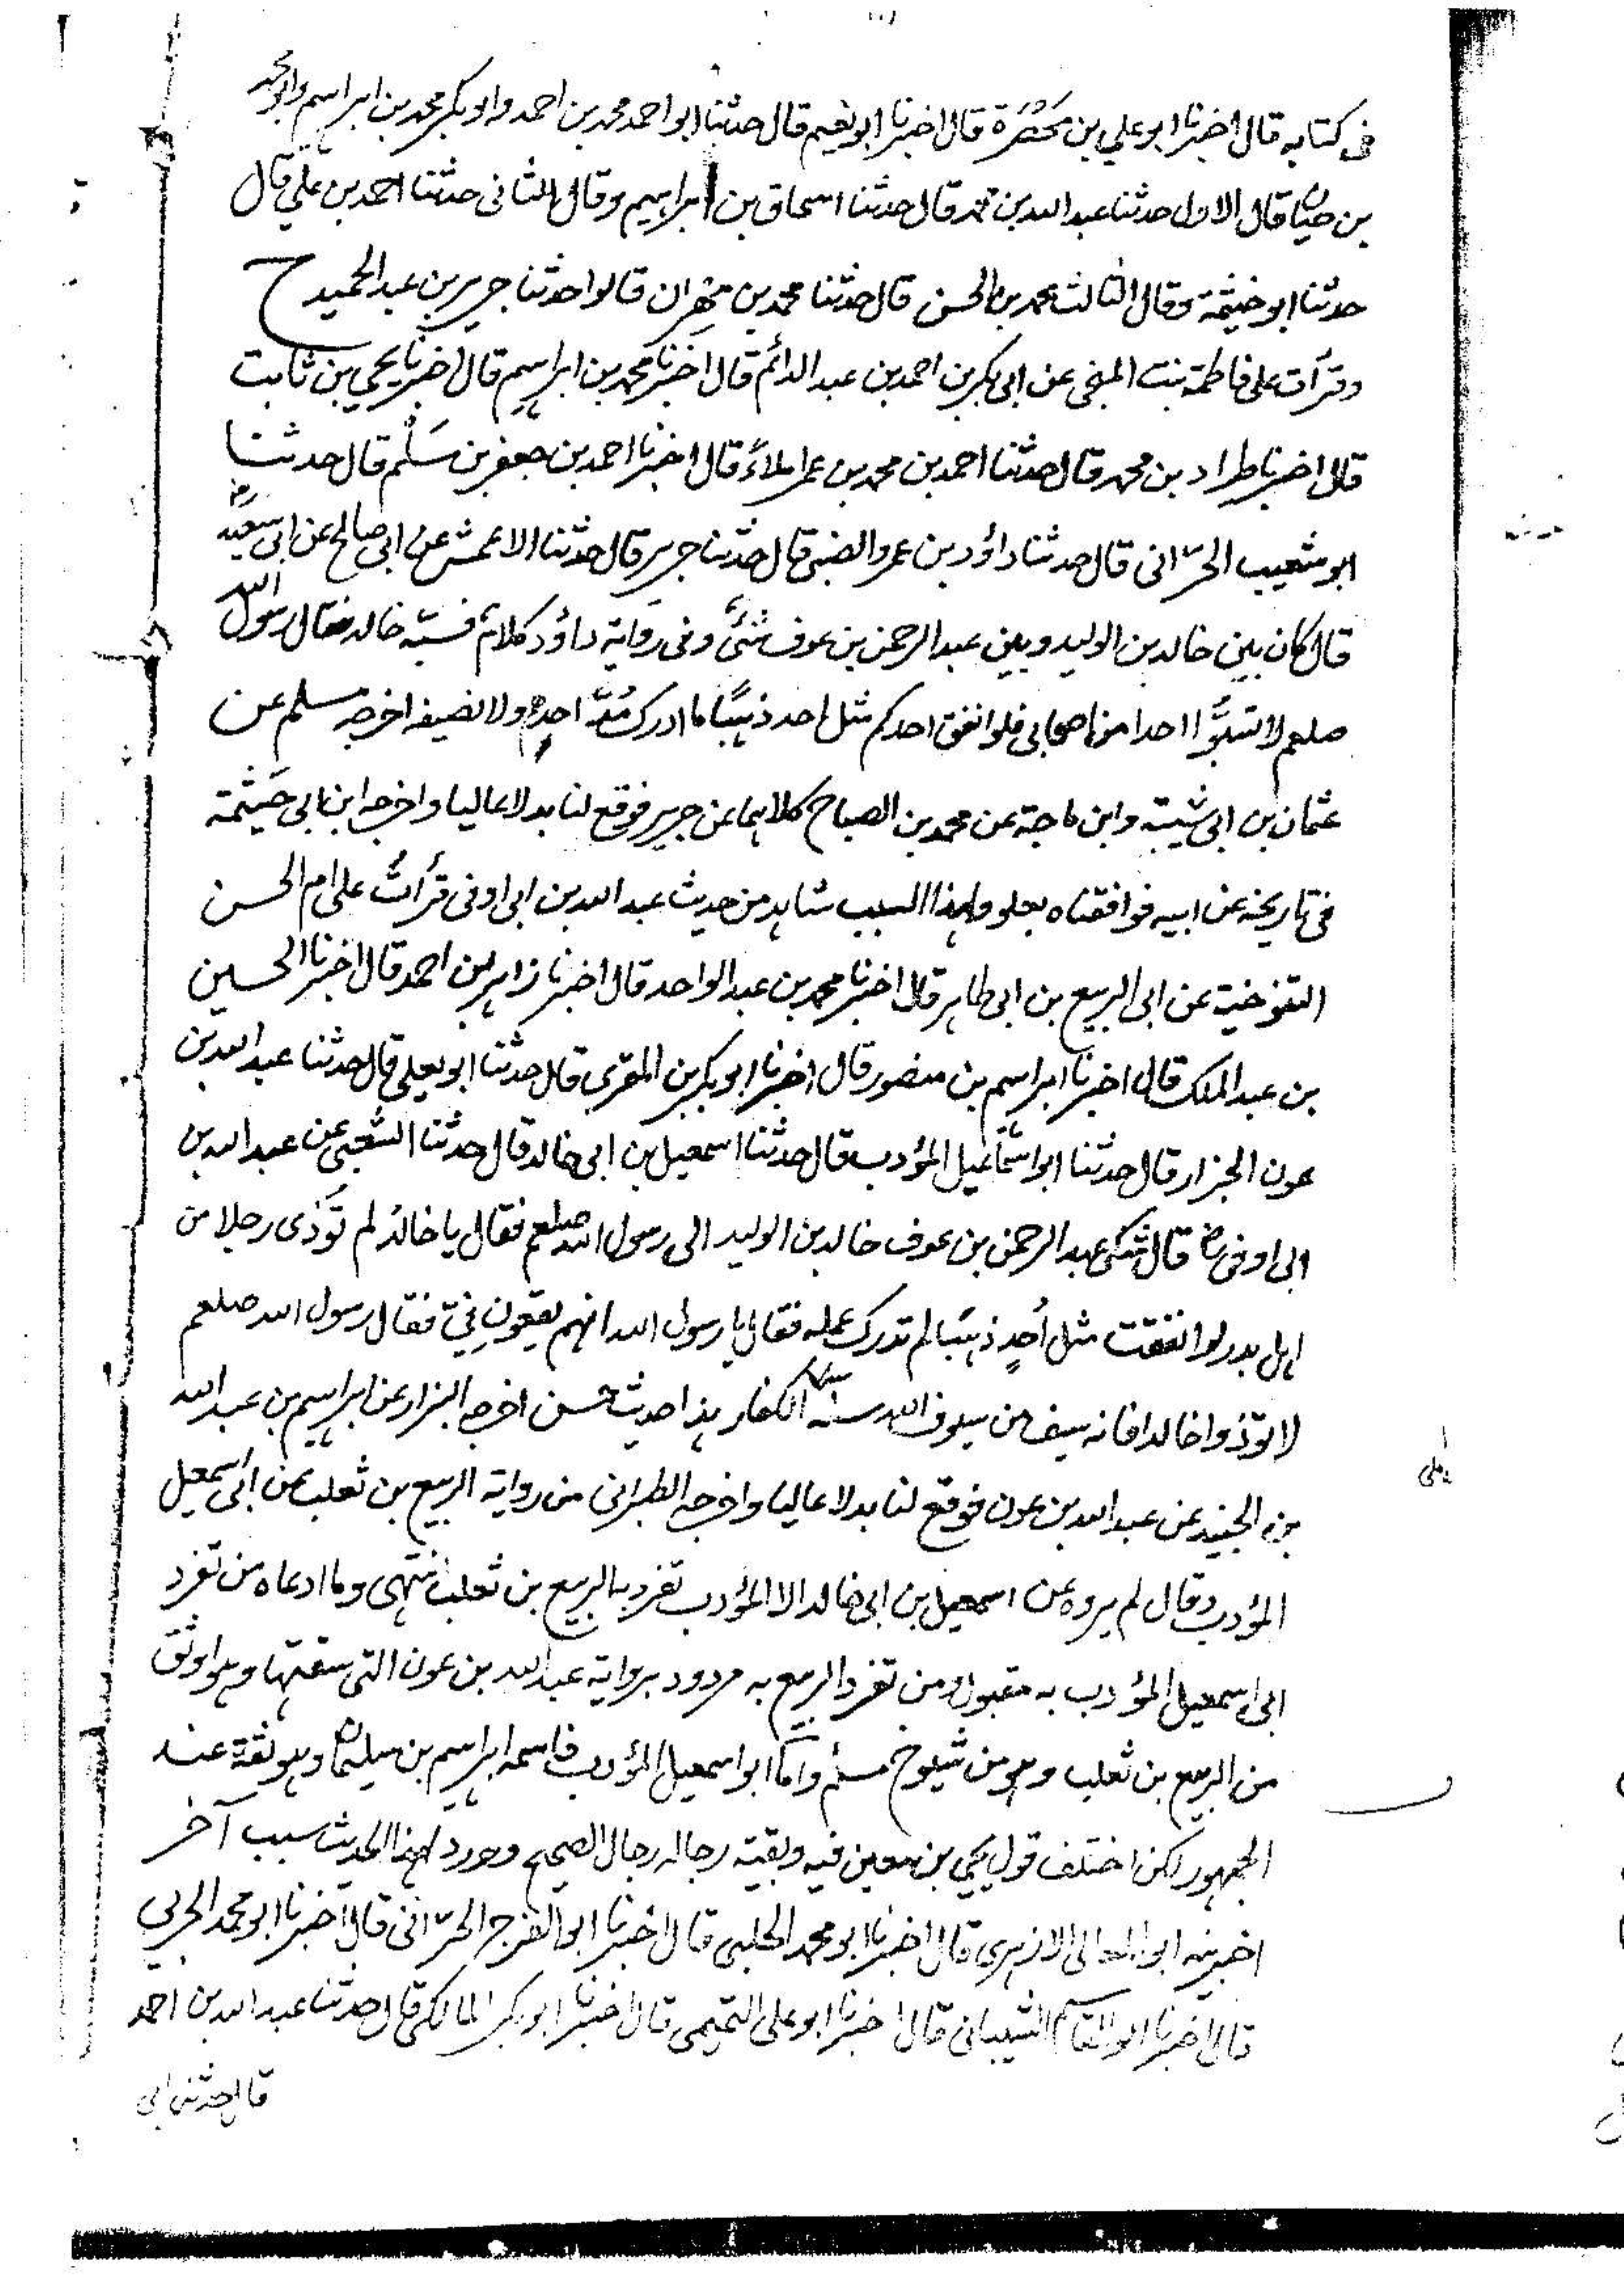 فى كتابه قال اخبرنا ابو علي بن مَحْضَرَة قال اخبرنا ابو نعيم قال حدثنا ابو احمد محمد بن احمد وابو بكر محمد بن ابراهيم وابو محمد
بن حيان قال الاول حدثنا عبد الله بن محمد قال حدثنا اسحاق بن ابراهيم وقال الثانى حدثنا احمد بن علي قال
حدثنا ابو خيثمة وقال الثالث محمد بن الحسن قال حدثنا محمد بن مهران قالوا حدثنا جرير بن عبد الحميد ح
وقرأت على فاطمة بنت المنجى عن ابى بكر بن احمد بن عبد الدائم قال اخبرنا محمد بن ابراهيم قال اخبرنا يحيى بن ثابت
قال اخبرنا طراد بن محمد قال حدثنا احمد بن محمد بن عمر املاءً قال اخبرنا احمد بن جعفر بن سَلْم قال حدثنا
ابو شعيب الحرّانى قال حدثنا داؤد بن عمرو الضبى قال حدثنا جرير قال حدثنا الاعمش عن ابى صالح عن ابى سعيد رض
قال كان بين خالد بن الوليد وبين عبد الرحمن بن عوف شئ وفى رواية داؤد كلام فسبّه خالد فقال رسول الله
صلعم لا تسبُّوا احدا من اصحابى فلو انفق احدكم مثل احد ذهبًا ما ادرك مُدّ احدهم ولا نصيفه اخرجه مسلم عن
عثمان بن ابى شيبة وابن ماجة عن محمد بن الصباح كلاهما عن جرير فوقع لنا بدلا عاليا واخرجه ابن ابى خَيثمة
فى تاريخه عن ابيه فوافقناه بعلو ولهذا السبب شاهد من حديث عبد الله بن ابى اوفى قرأتُ على ام الحسن
التنوخية عن ابى الربيع بن ابى طاهر قال اخبرنا محمد بن عبد الواحد قال اخبرنا زاهر بن احمد قال اخبرنا الحسين
بن عبد الملك قال اخبرنا ابراهيم بن منصور قال اخبرنا ابو بكر بن المقرى قال حدثنا ابو يعلى قال حدثنا عبد الله بن
عون الجزار قال حدثنا ابو اسماعيل المؤدب قال حدثنا اسمعيل بن ابى خالد قال حدثنا الشعبى عن عبد الله بن
ابى اوفى رض قال شكى عبد الرحمن بن عوف خالد بن الوليد الى رسول الله صلعم فقال يا خالد لم تؤذى رجلا من
اهل بدر لو انفقت مثل أُحدٍ ذهبًا لم تدرك عمله فقال يا رسول الله انهم يقعون فيّ فقال رسول الله صلعم
لا تؤذوا خالدا فانه سيف من سيوف الله سله الكفار هذا حديث حسن اخرجه البزار عن ابراهيم بن عبد الله
على
بن الجنيد عن عبد الله بن عون فوقع لنا بدلا عاليا واخرجه الطبرانى من رواية الربيع بن ثعلب عن ابى اسمعيل
المؤدب وقال لم يروه عن اسمعيل بن ابى خالد الا المؤدب تفرد به الربيع بن ثعلب انتهى وما ادعاه من تفرد
ابى اسمعيل المؤدب به مقبول ومن تفرد الربيع به مردود برواية عبد الله بن عون التى سقتها وهو اوثق
من الربيع بن ثعلب وهو من شيوخ مسلم واما ابو اسمعيل المؤدب فاسمه ابراهيم بن سليمان وهو ثقة عند
الجمهور لكن اختلف قول يحيى بن معين فيه وبقية رجاله رجال الصحيح وورد لهذا الحديث سبب آخر
اخبرنيه ابو المعالى الازهرى قال اخبرنا ابو محمد الحلبى قال اخبرنا ابو الفرج الحرّانى قال اخبرنا ابو محمد الحربى
قال اخبرنا ابو القاسم الشيبانى قال اخبرنا ابو على التميمى قال اخبرنا ابو بكر المالكى قال حدثنا عبد الله بن احمد
قال حدثنى ابى